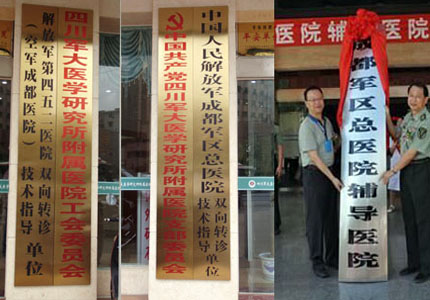 四川军大医学研究所附属医院工会委员会
解放军第四五二医院
(空军成都医院)
双向转诊
技术指导
单位
中国人民解放军成都军区总医院
双向转诊
技术指导
单位
中国共产党四川军大医学研究所附属医院支部委员会
医院辅导医院
成都军区总医院辅导医院